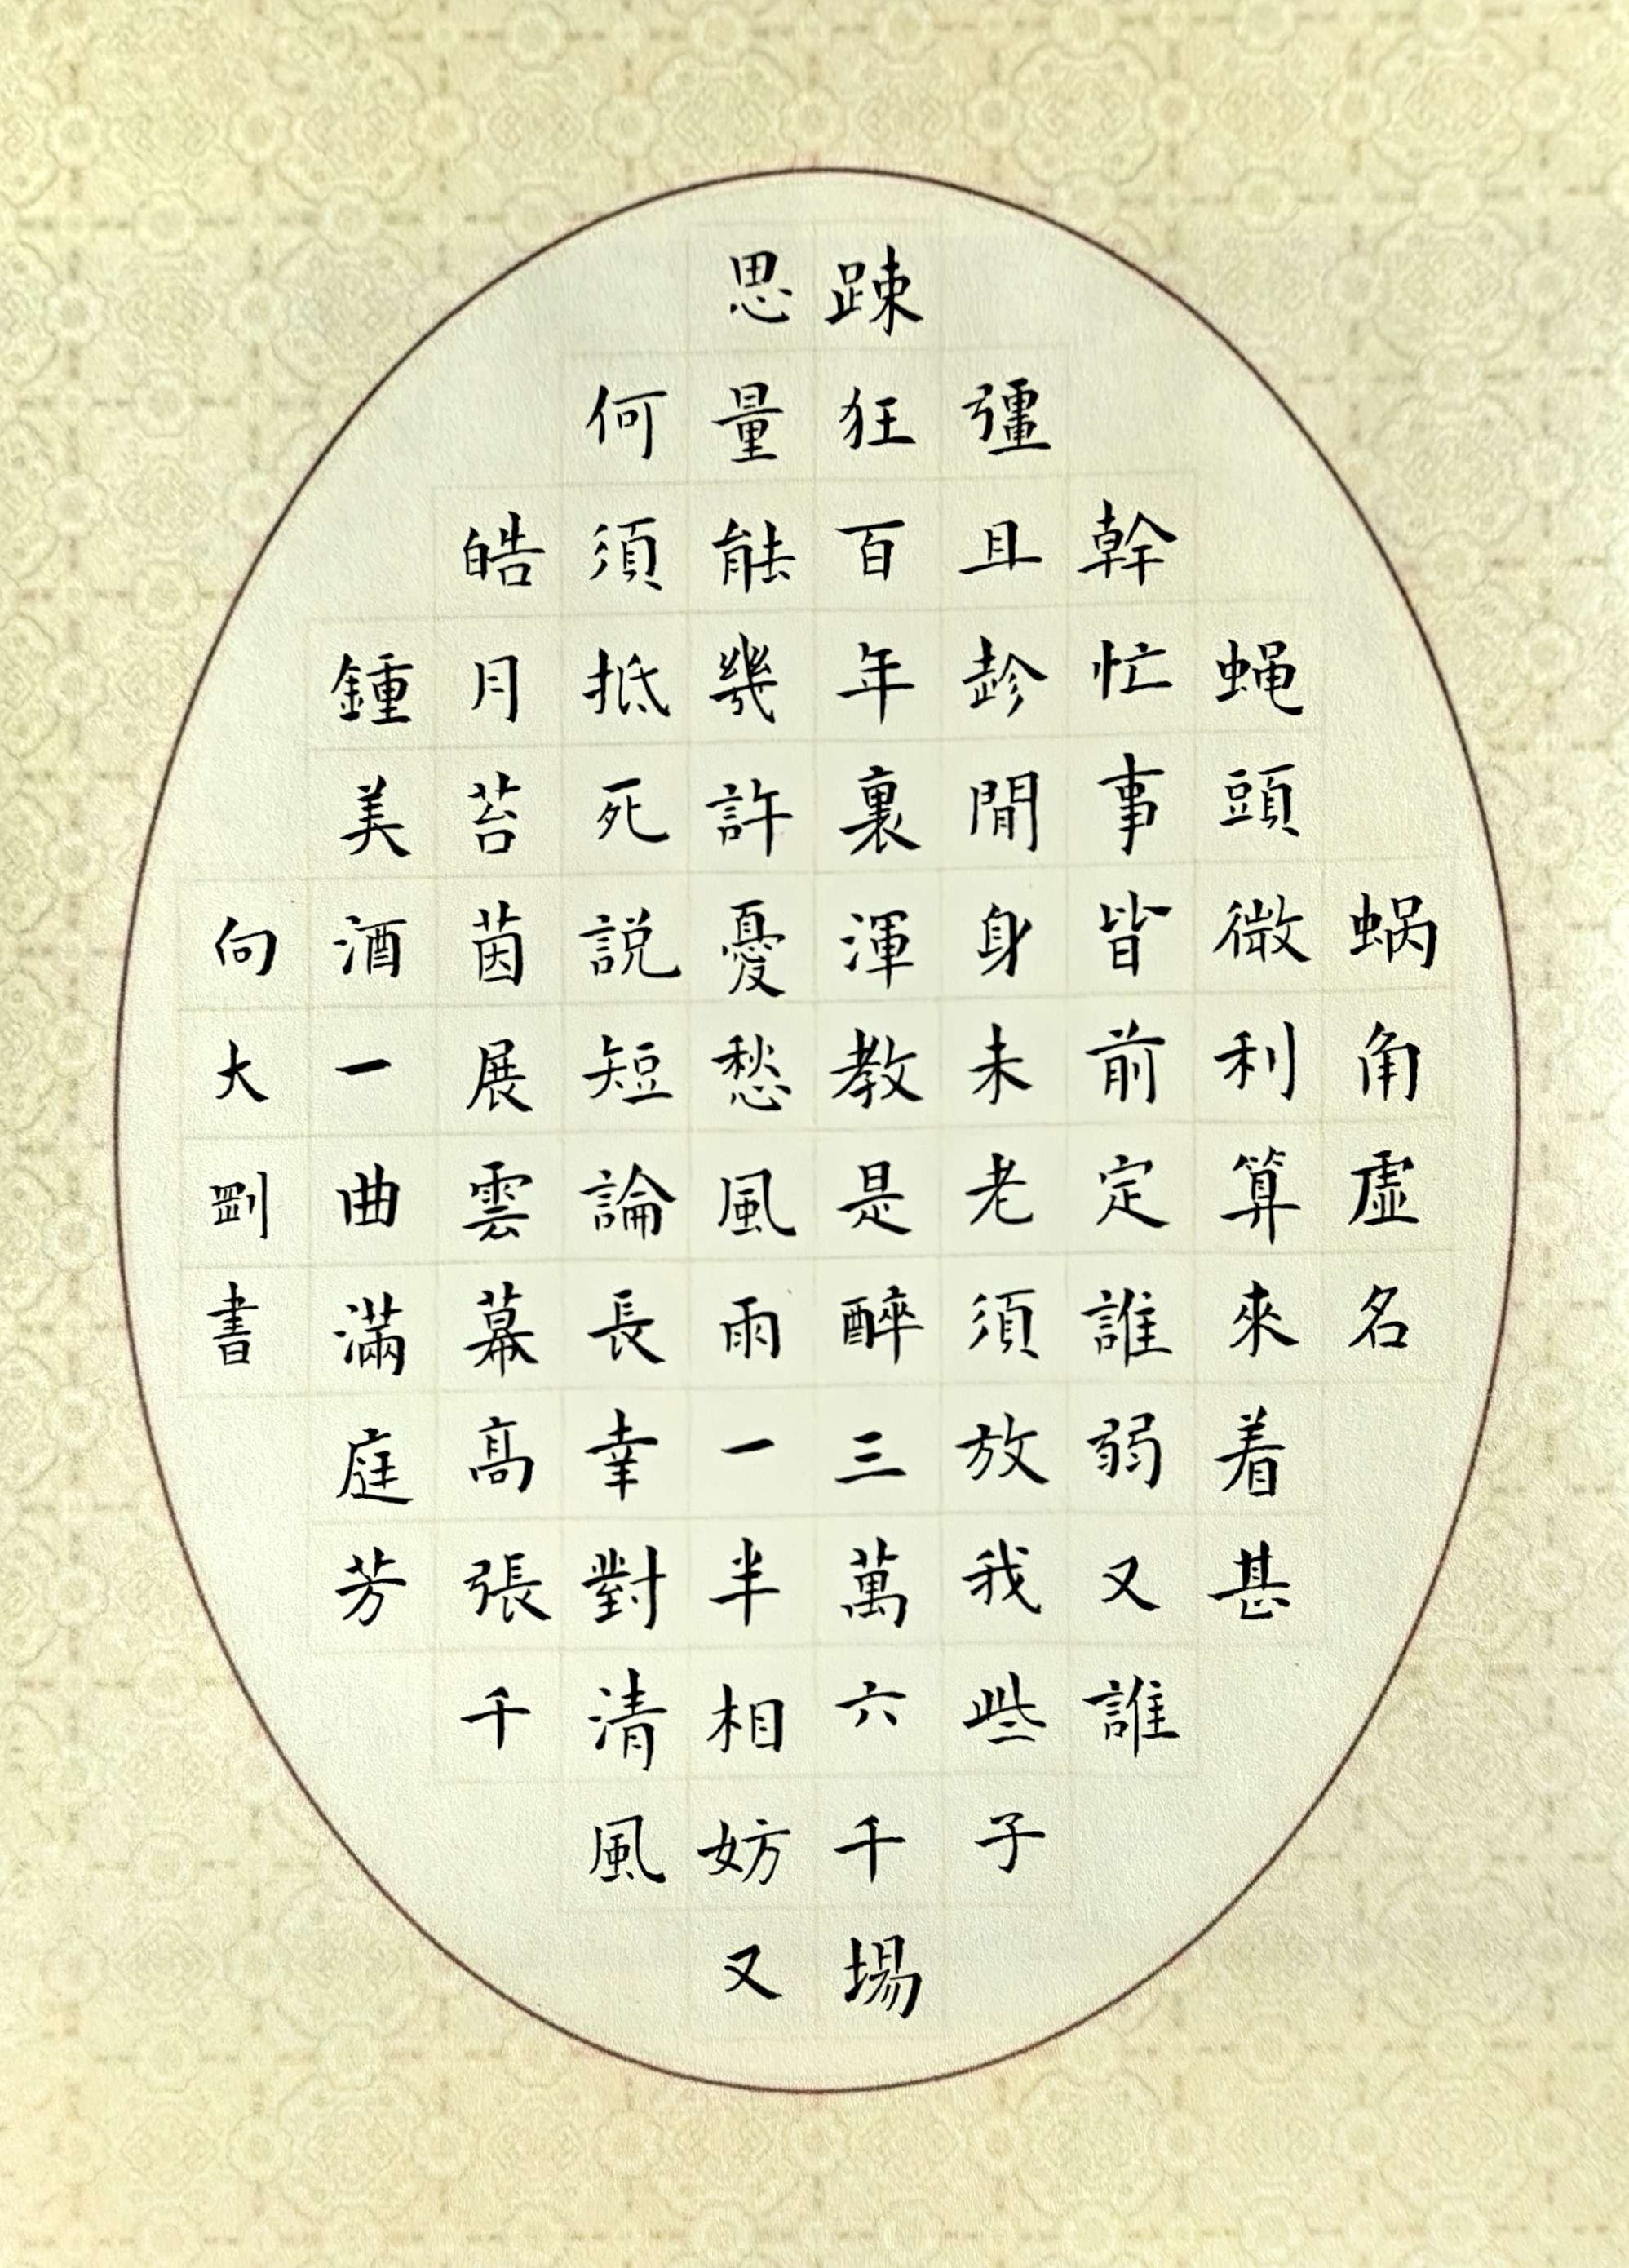 蜗角虚名
蝇頭微利算來着甚
幹忙事皆前定誰弱又誰
彊且趁閒身未老須放我些子
踈狂百年裏渾教是醉三萬六千場
思量能幾許憂愁風雨一半相妨又
何須抵死説短論長幸對清風
皓月苔茵展雲幕高張千
鍾美酒一曲滿庭芳
向大剛書